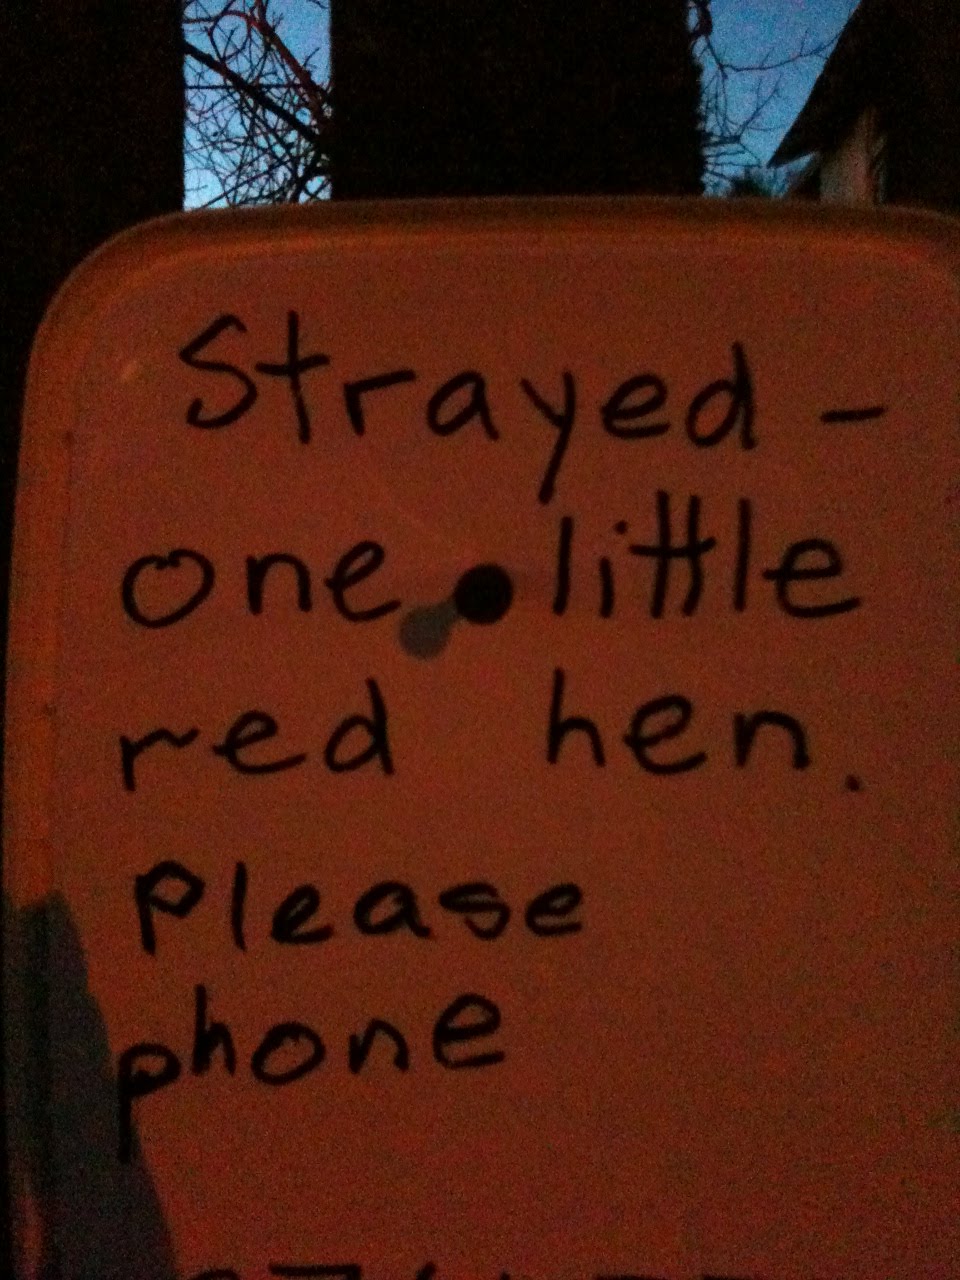 Strayed -
one little
red hen.
Please
phone